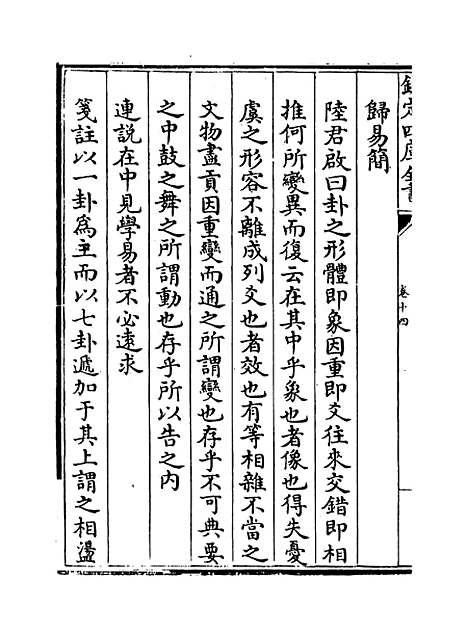 欽定四庫全書
卷十四
歸易簡
陸君啟曰卦之形體即象因重即爻往來交錯即相
推何所變異而復云在其中乎象也者像也得失憂
虞之形容不離成列爻也者效也有等相雜不當之
文物盡貢因重變而通之所謂變也存乎不可典要
之中鼓之舞之所謂動也存乎所以告之内
連説在中見學易者不必逺求
箋註以一卦為主而以七卦遞加于其上謂之相盪